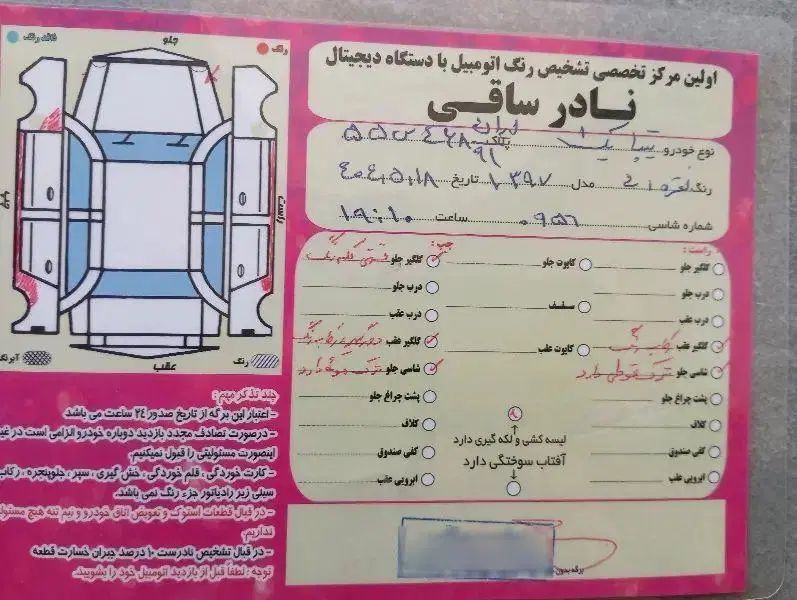 اولین مرکز تخصصی تشخیص رنگ اتومبیل با دستگاه دیجیتال
نادر ساقی
نوع خودرو تیبا یک پلاک ایران ۹۱ ۵۵ س ۴۶۸
رنگ نقره ای مدل ۱۳۹۷ تاریخ ۴۰۴,۵,۱۸
شماره شاسی ۰۹۵۶ ساعت ۱۹:۱۰
فاقد رنگ
رنگ
جلو
چپ
راست
عقب
آبرنگ
رنگ
راست:
گلگیر جلو
درب جلو
درب عقب
گلگیر عقب
شاسی جلو
پشت چراغ جلو
کلاف
کفی صندوق
ابرویی عقب
کاپوت جلو
سقف
کاپوت عقب
لیسه کشی و لکه گیری دارد
آفتاب سوختگی دارد
چپ:
گلگیر جلو
درب جلو
درب عقب
گلگیر عقب
شاسی جلو
پشت چراغ جلو
کلاف
کفی صندوق
ابرویی عقب
چند تذکر مهم:
- اعتبار این برگه از تاریخ صدور ۲۴ ساعت می باشد
- درصورت تصادف مجدد بازدید دوباره خودرو الزامی است در غیر
اینصورت مسئولیتی را قبول نمیکنیم.
- کارت خوردگی ، قلم خوردگی ، خش گیری ، سپر ، جلوپنجره ، رکاب
سینی زیر رادیاتور جزء رنگ نمی باشد.
- در قبال قطعات استوک و تعویض اتاق خودرو و نیم تنه هیچ مسئول
نداریم.
- در قبال تشخیص نادرست ۱۰ درصد جبران خسارت قطعه
توجه : لطفاً قبل از بازدید اتومبیل خود را بشویید.
برگه بدون